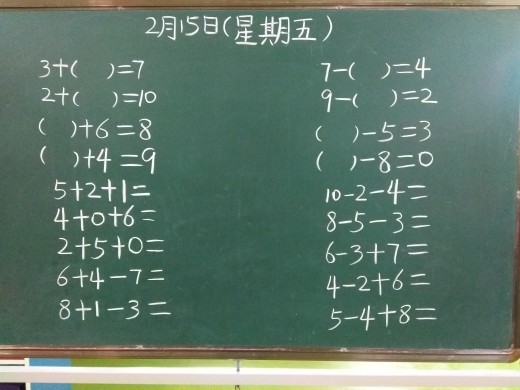 2月15日(星期五)
3+( )=7
2+( )=10
( )+6=8
( )+4=9
5+2+1=
4+0+6=
2+5+0=
6+4-7=
8+1-3=
7-( )=4
9-( )=2
( )-5=3
( )-8=0
10-2-4=
8-5-3=
6-3+7=
4-2+6=
5-4+8=